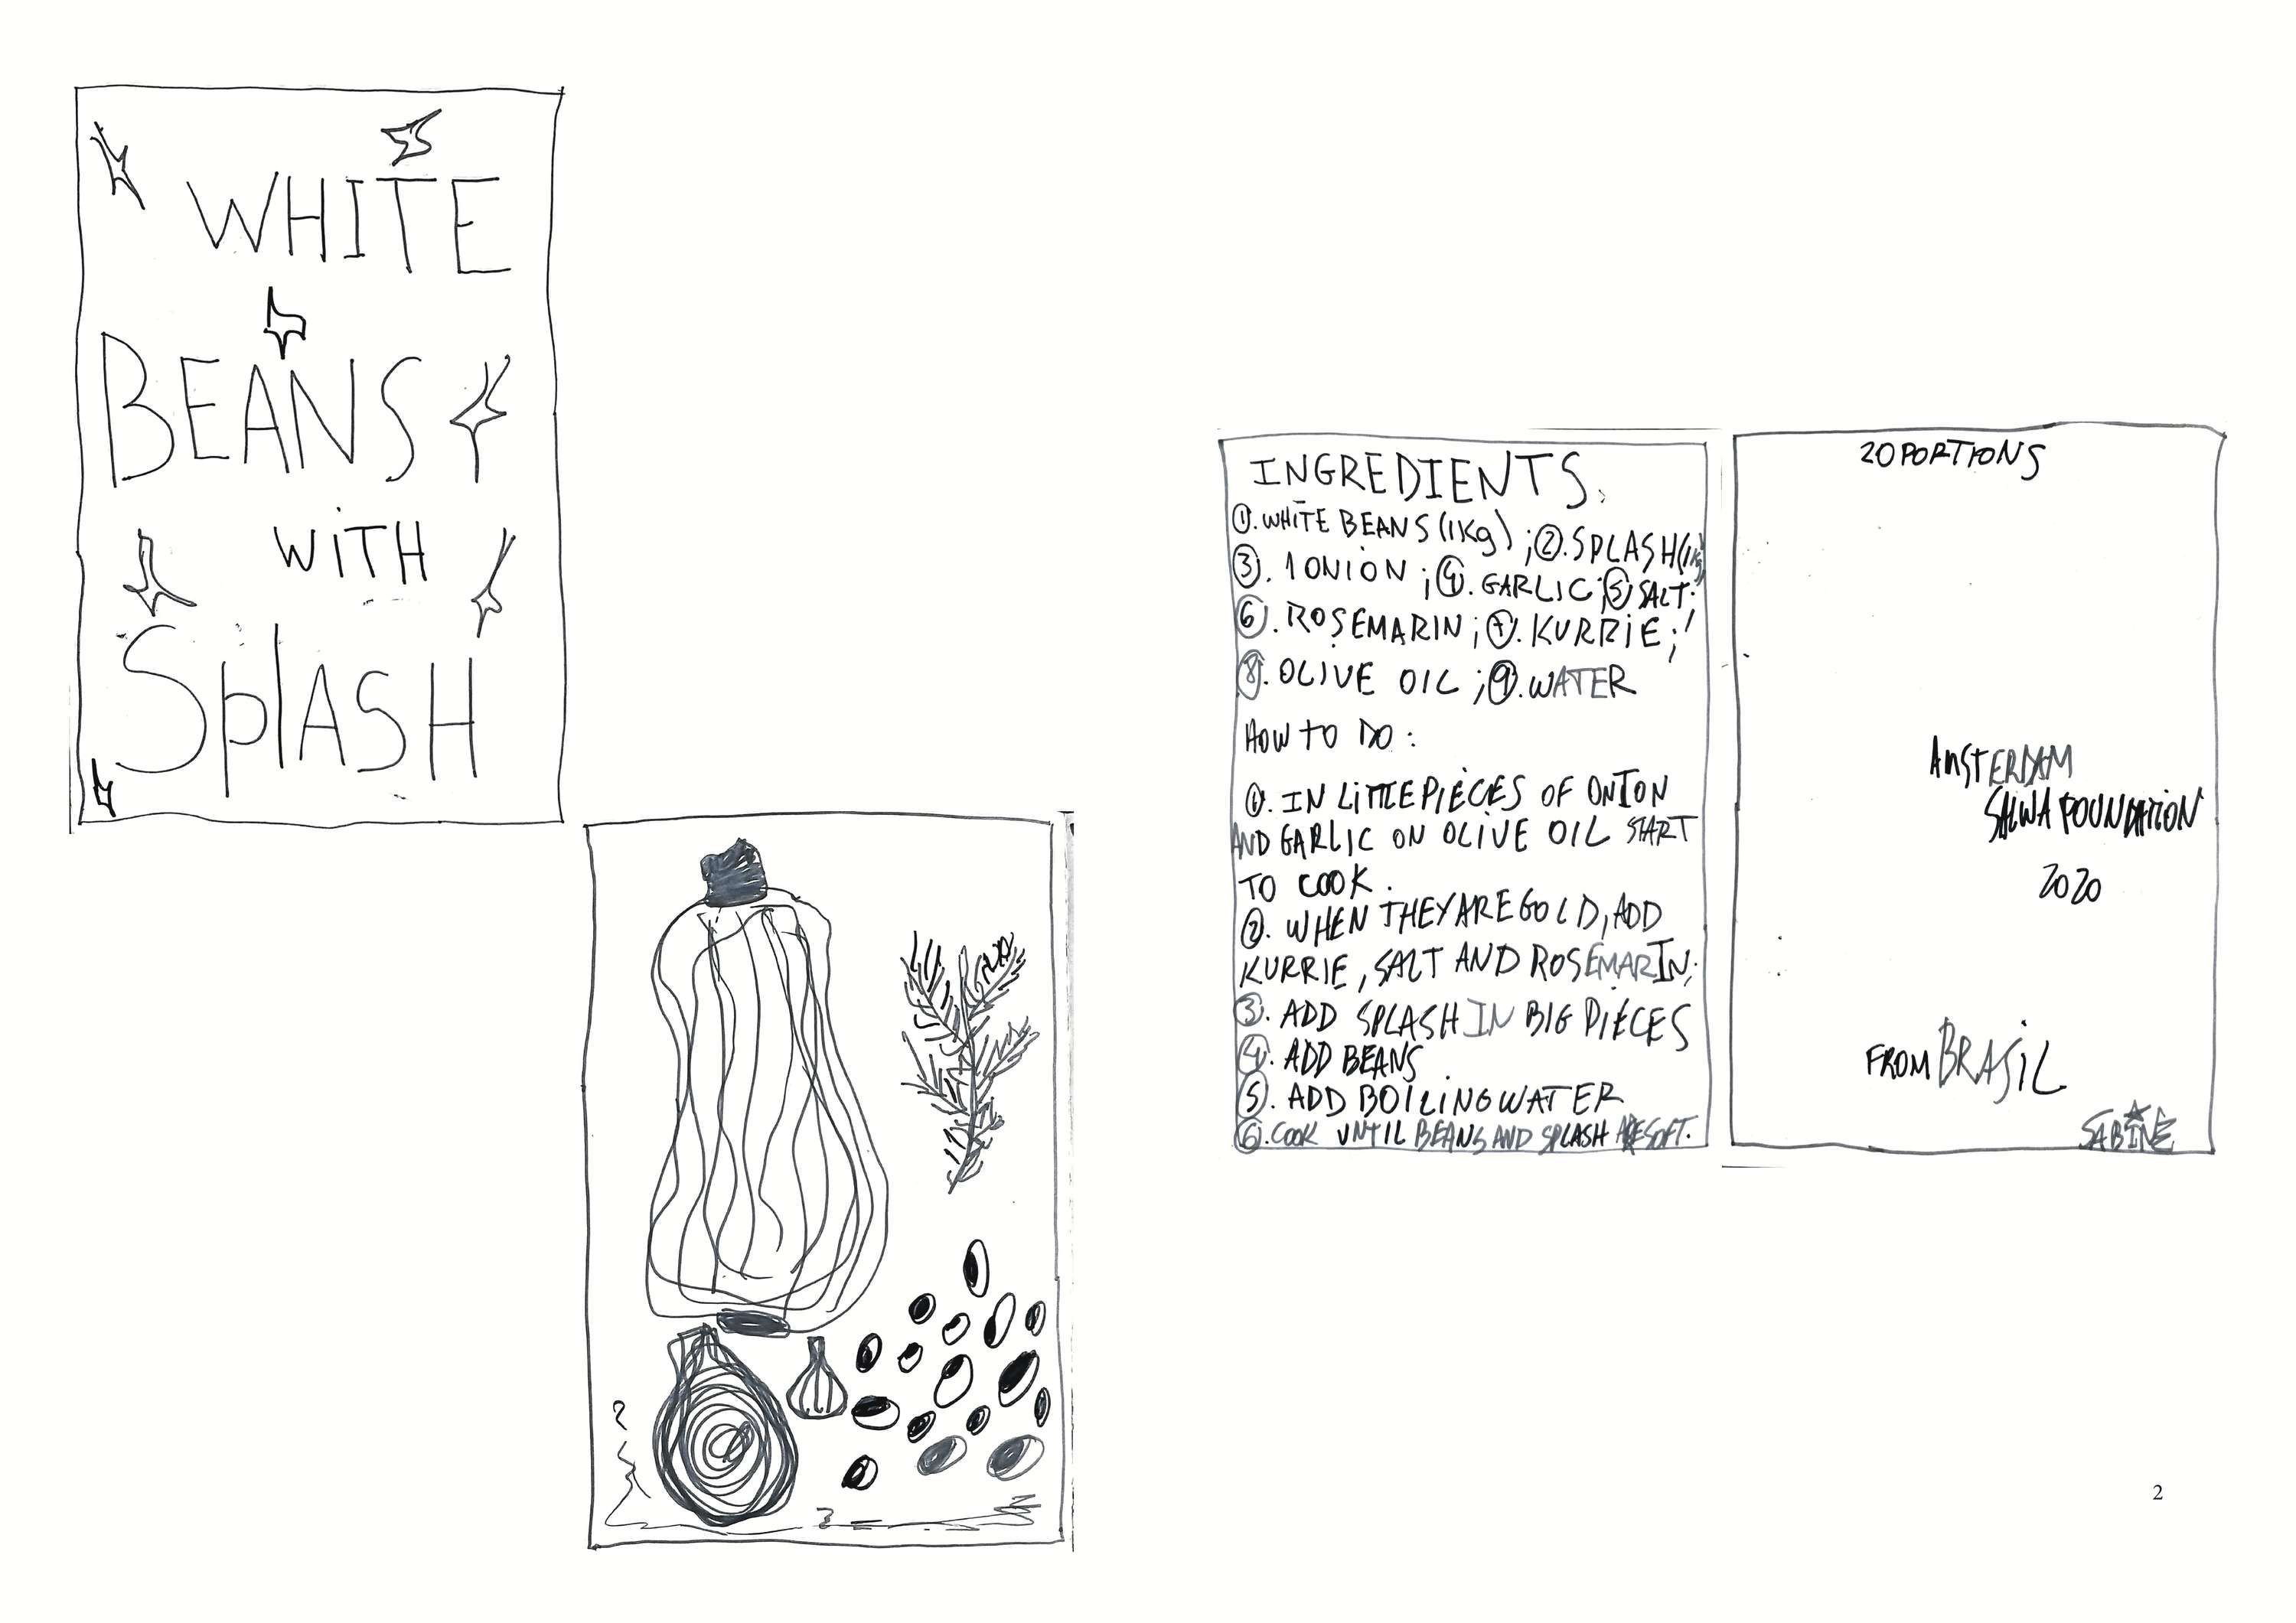 WHITE
BEANS
WiTH
SplASH
INGREDIENTS.
①. WHITE BEANS (1Kg) ; ②. SPLASH (1Kg)
③. 1 ONION ; ④. GARLIC ; ⑤ SALT;
⑥. ROSEMARIN ; ⑦. KURRIE ;
⑧. OLIVE OIL ; ⑨. WATER
HOW TO DO :
①. IN LITTLE PIECES OF ONION
AND GARLIC ON OLIVE OIL START
TO COOK.
②. WHEN THEY ARE GOLD, ADD
KURRIE, SALT AND ROSEMARIN.
③. ADD SPLASH IN BIG PIECES
④. ADD BEANS
⑤. ADD BOILING WATER
⑥. COOK UNTIL BEANS AND SPLASH ARE SOFT.
20 PORTIONS
AMSTERDAM
SALWA FOUNDATION
2020
FROM BRASIL
SABINE
2